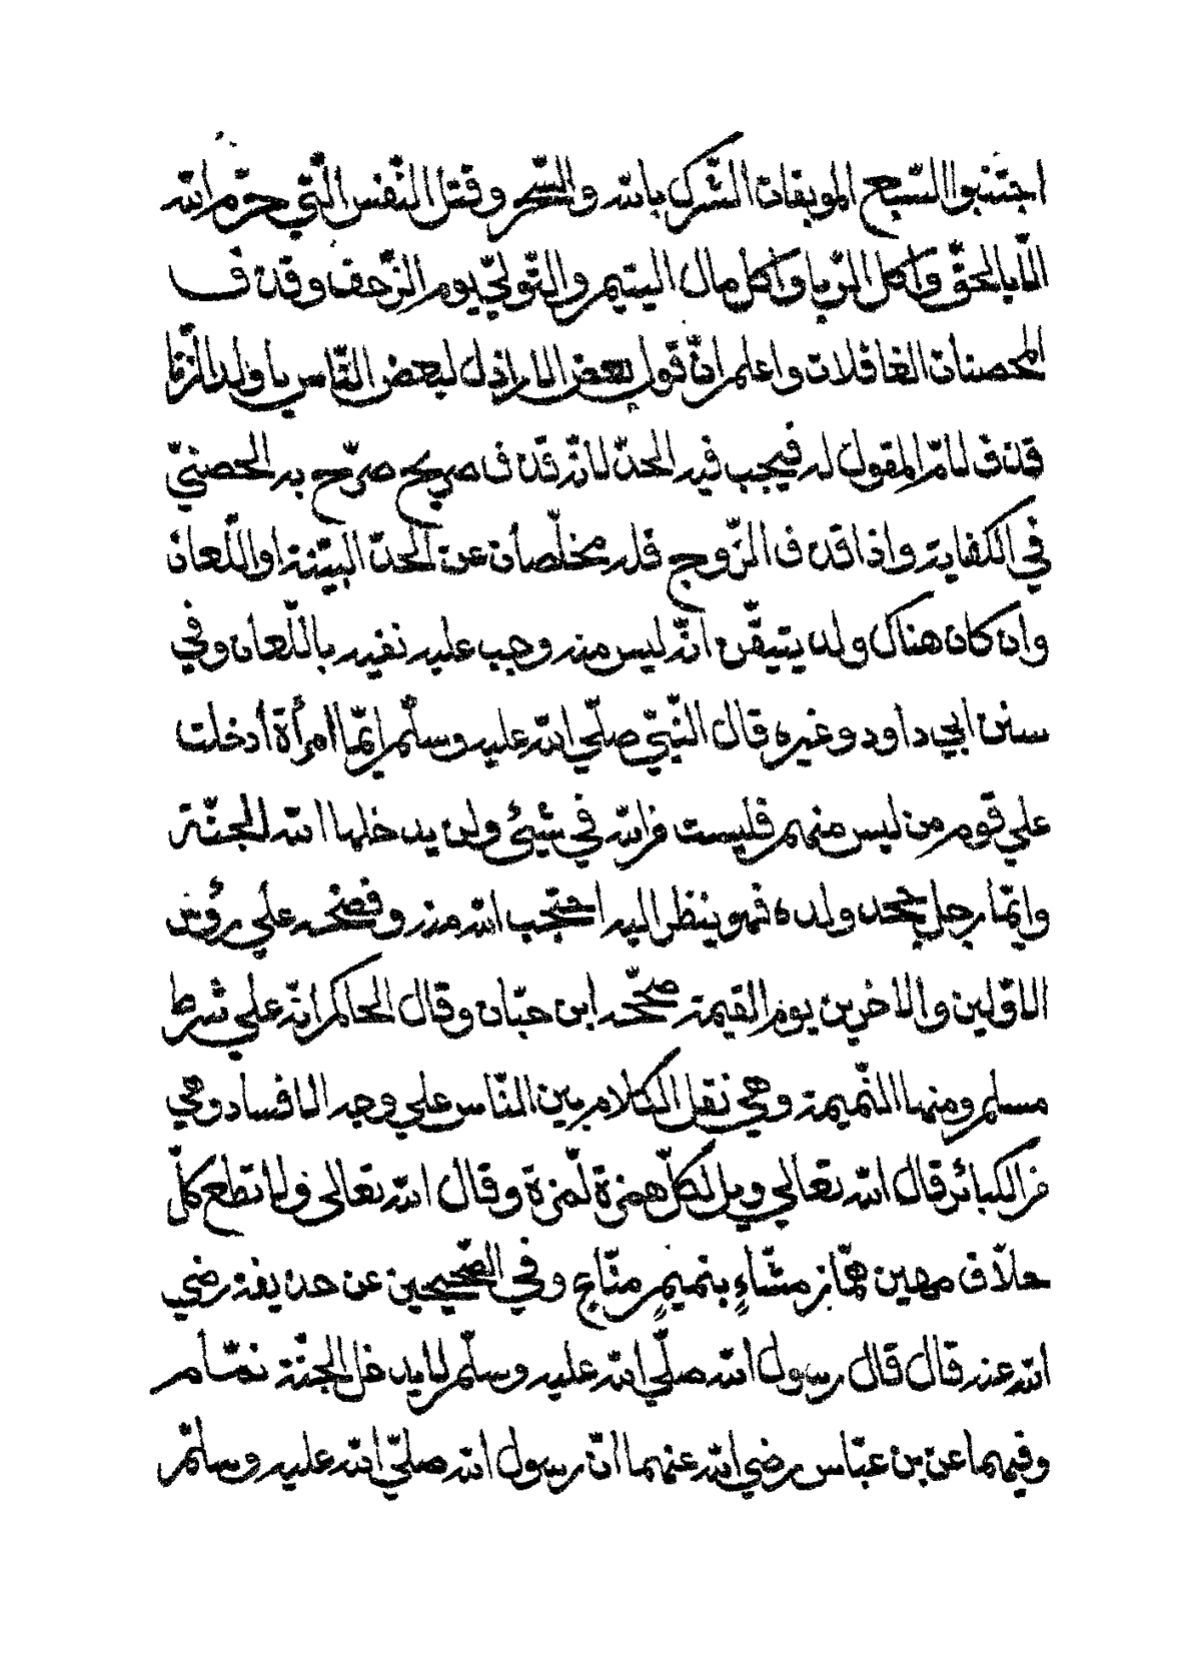 اجتنبوا السّبع الموبقات الشّرك بالله والسّحر وقتل النّفس الّتي حرّم الله
الّا بالحقّ واكل الرّبا واكل مال اليتيم والتّولّي يوم الزّحف وقذف
المحصنات الغافلات واعلم انّ قول بعض الاراذل لبعض النّاس يا ولد الزّنا
قذف لامّ المقول له فيجب فيه الحدّ لانّه قذف صريح صرّح به الحصنيّ
في الكفاية واذا قذف الزّوج فله مخلّصان عن الحدّ البيّنة او اللّعان
وان كان هناك ولد يتيقّن انّه ليس منه وجب عليه نفيه باللّعان وفي
سنن ابي داود وغيره قال النّبيّ صلّي الله عليه وسلّم ايّما امرأة أدخلت
علي قوم من ليس منهم فليست من الله في شيئ ولن يدخلها الله الجنّة
وايّما رجل جحد ولده فهو ينظر اليه احتجب الله منه وفضحه علي رؤس
الاوّلين والاخرين يوم القيمة صحّحه ابن حبّان وقال الحاكم انّه علي شرط
مسلم ومنها النّميمة وهي نقل الكلام بين النّاس علي وجه الافساد وهي
من الكبائر قال الله تعالي ويل لكلّ همزة لّمزة وقال الله تعالي ولا تطع كلّ
حلاّف مهين همّاز مشّاءٍ بنميمٍ منّاع وفي الصّحيحين عن حذيفة رضي
الله عنه قال قال رسول الله صلّي الله عليه وسلّم لا يدخل الجنّة نمّام
وفيهما عن بن عبّاس رضي الله عنهما انّ رسول الله صلّي الله عليه وسلّم